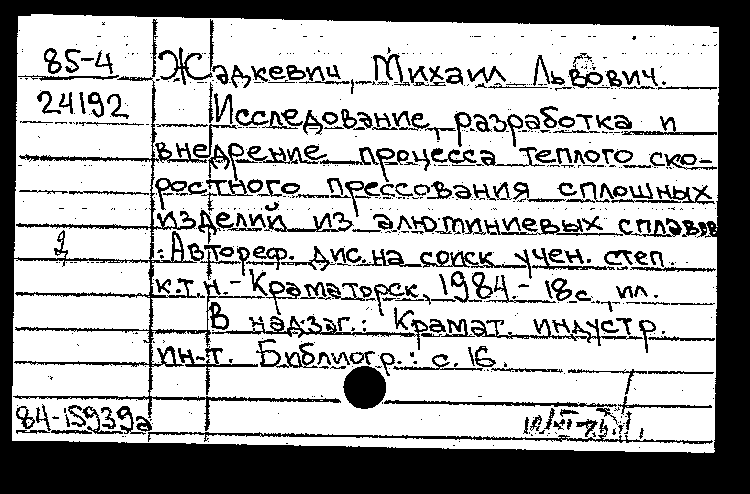 85-4 Жадкевич, Михаил Львович.
24192 Исследование, разработка и
внедрение процесса теплого ско-
ростного прессования сплошных
изделий из алюминиевых сплавов
: Автореф. дис. на соиск учен. степ.
к.т.н. - Краматорск, 1984. - 18с, ил.
В надзаг.: Крамат. индустр.
ин-т. Библиогр.: с. 16.
84-15939а